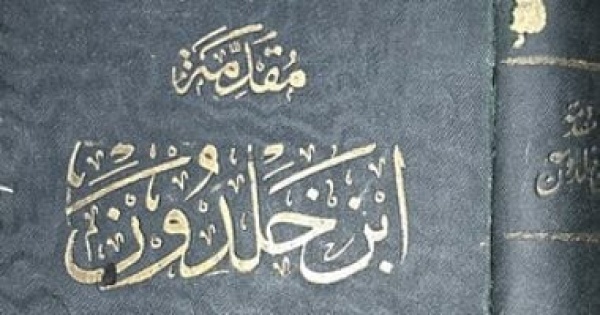 مُقَدِّمَة
ابْن خَلْدُون
مقدمة
ابن خلدون